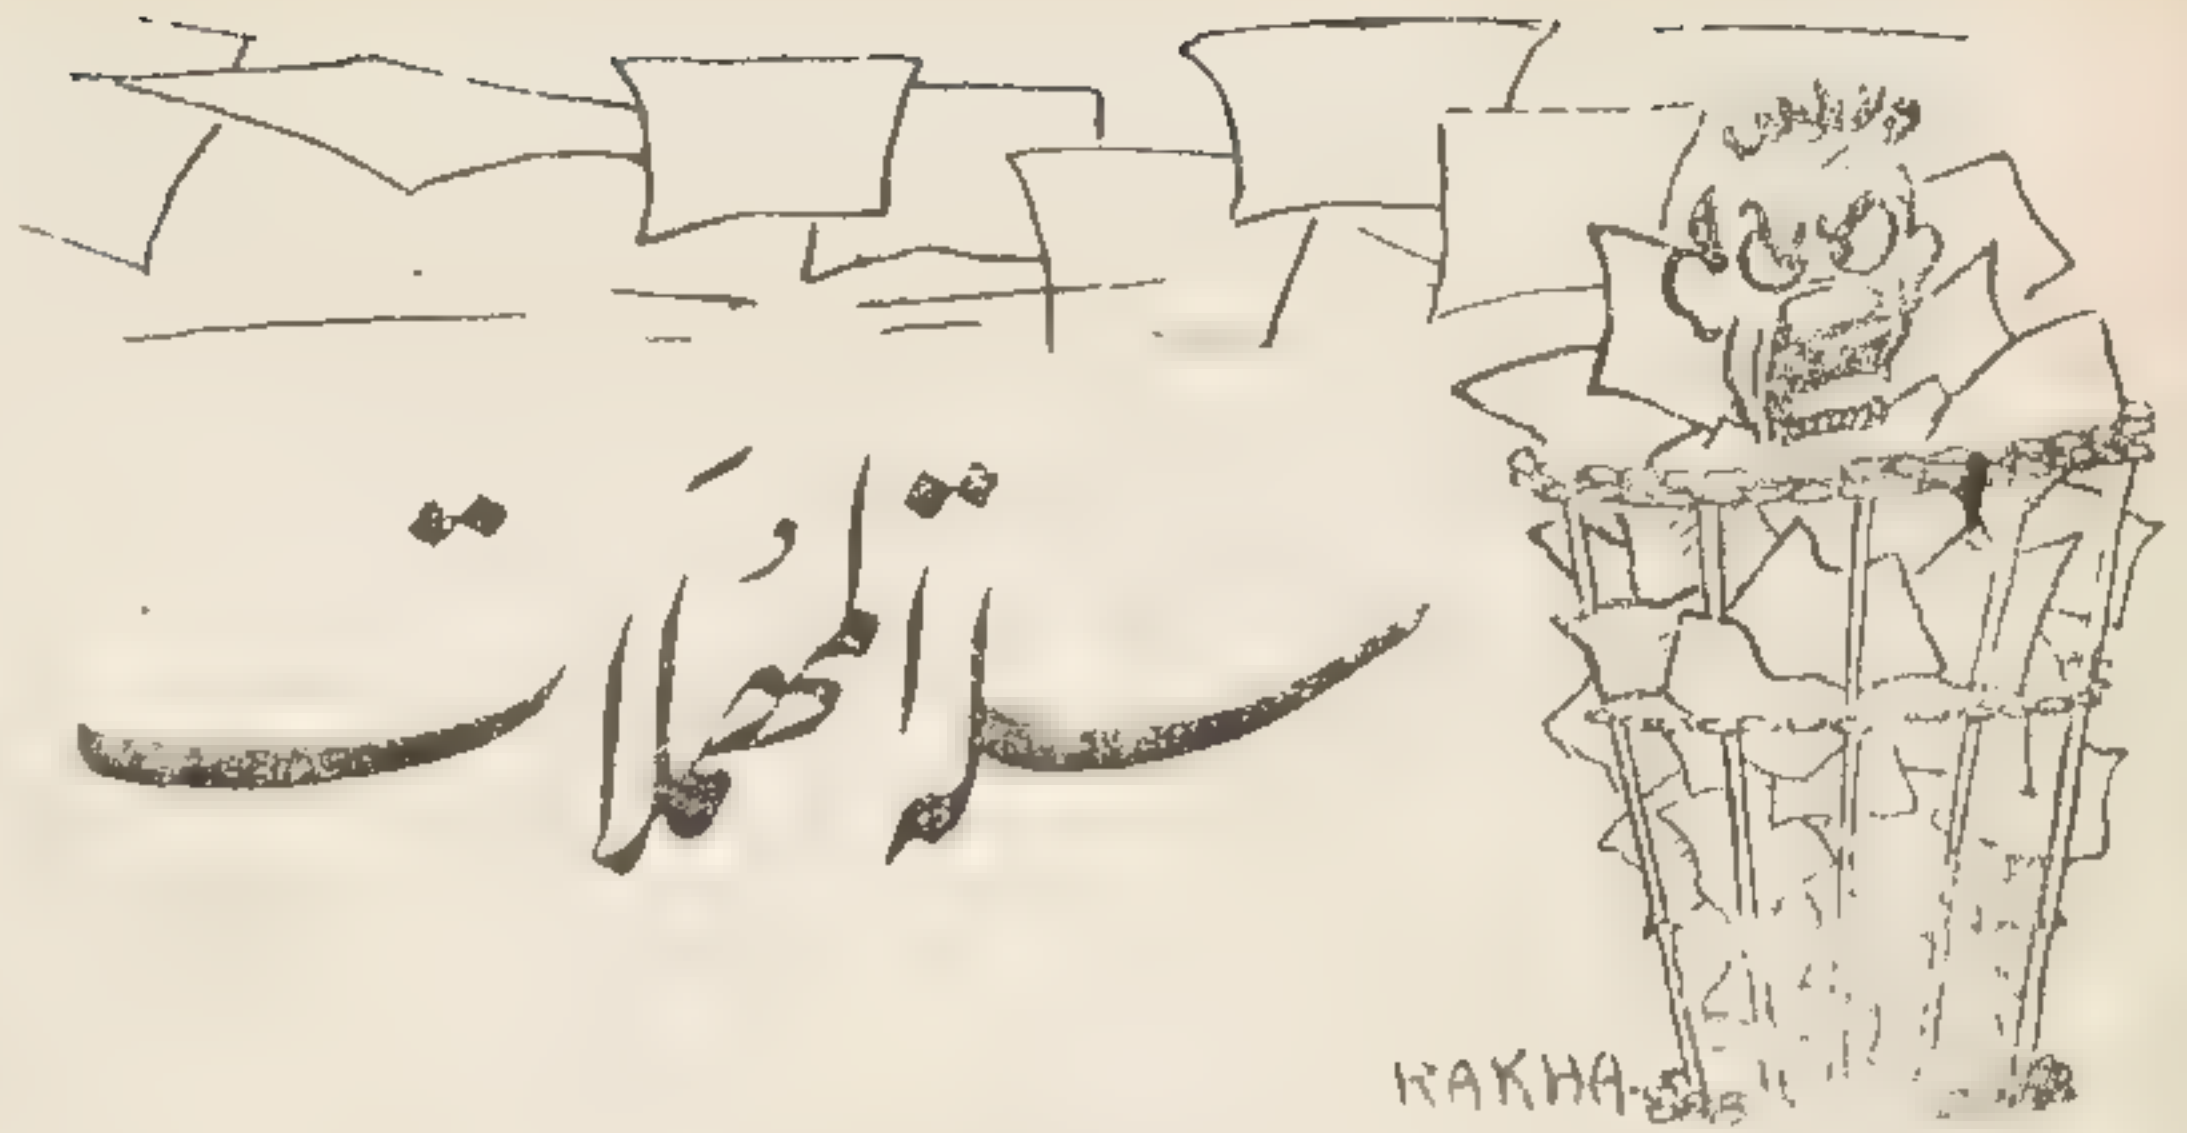 سلة المُهمَلات
KAKHA